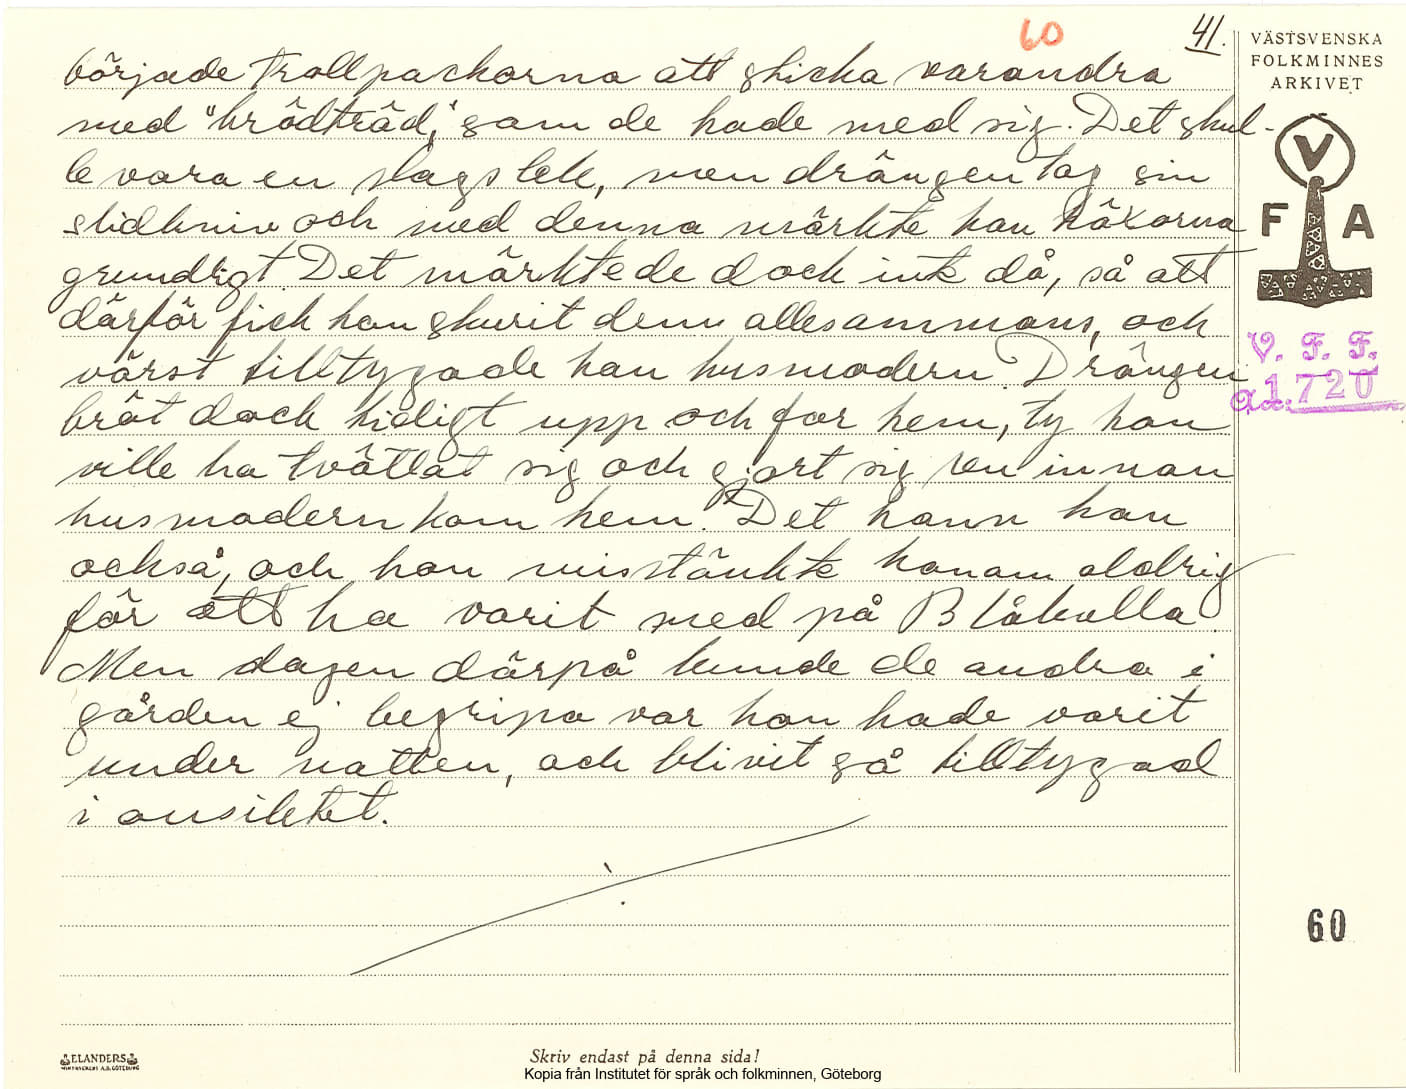 60
41.
VÄSTSVENSKA
FOLKMINNES
ARKIVET
V
F A
V. F. F.
1720
började trollpackorna att skicka varandra
med "brödträd," som de hade med sig. Det skul-
le vara en slags lek, men drängen tog sin
slidkniv och med denna märkte han häxorna
grundligt. Det märkte de dock inte då, så att
därför fick han skurit dem allesammans, och
värst tilltygade han husmodern. Drängen
bröt dock tidigt upp och for hem, ty han
ville ha tvättat sig och gjort sig ren innan
husmodern kom hem. Det hann han
också, och hon misstänkte honom aldrig
för att ha varit med på Blåkulla.
Men dagen därpå kunde de andra i
gården ej begripa var hon hade varit
under natten, och blivit så tilltygad
i ansiktet.
60
ELANDERS
Skriv endast på denna sida!
Kopia från Institutet för språk och folkminnen, Göteborg